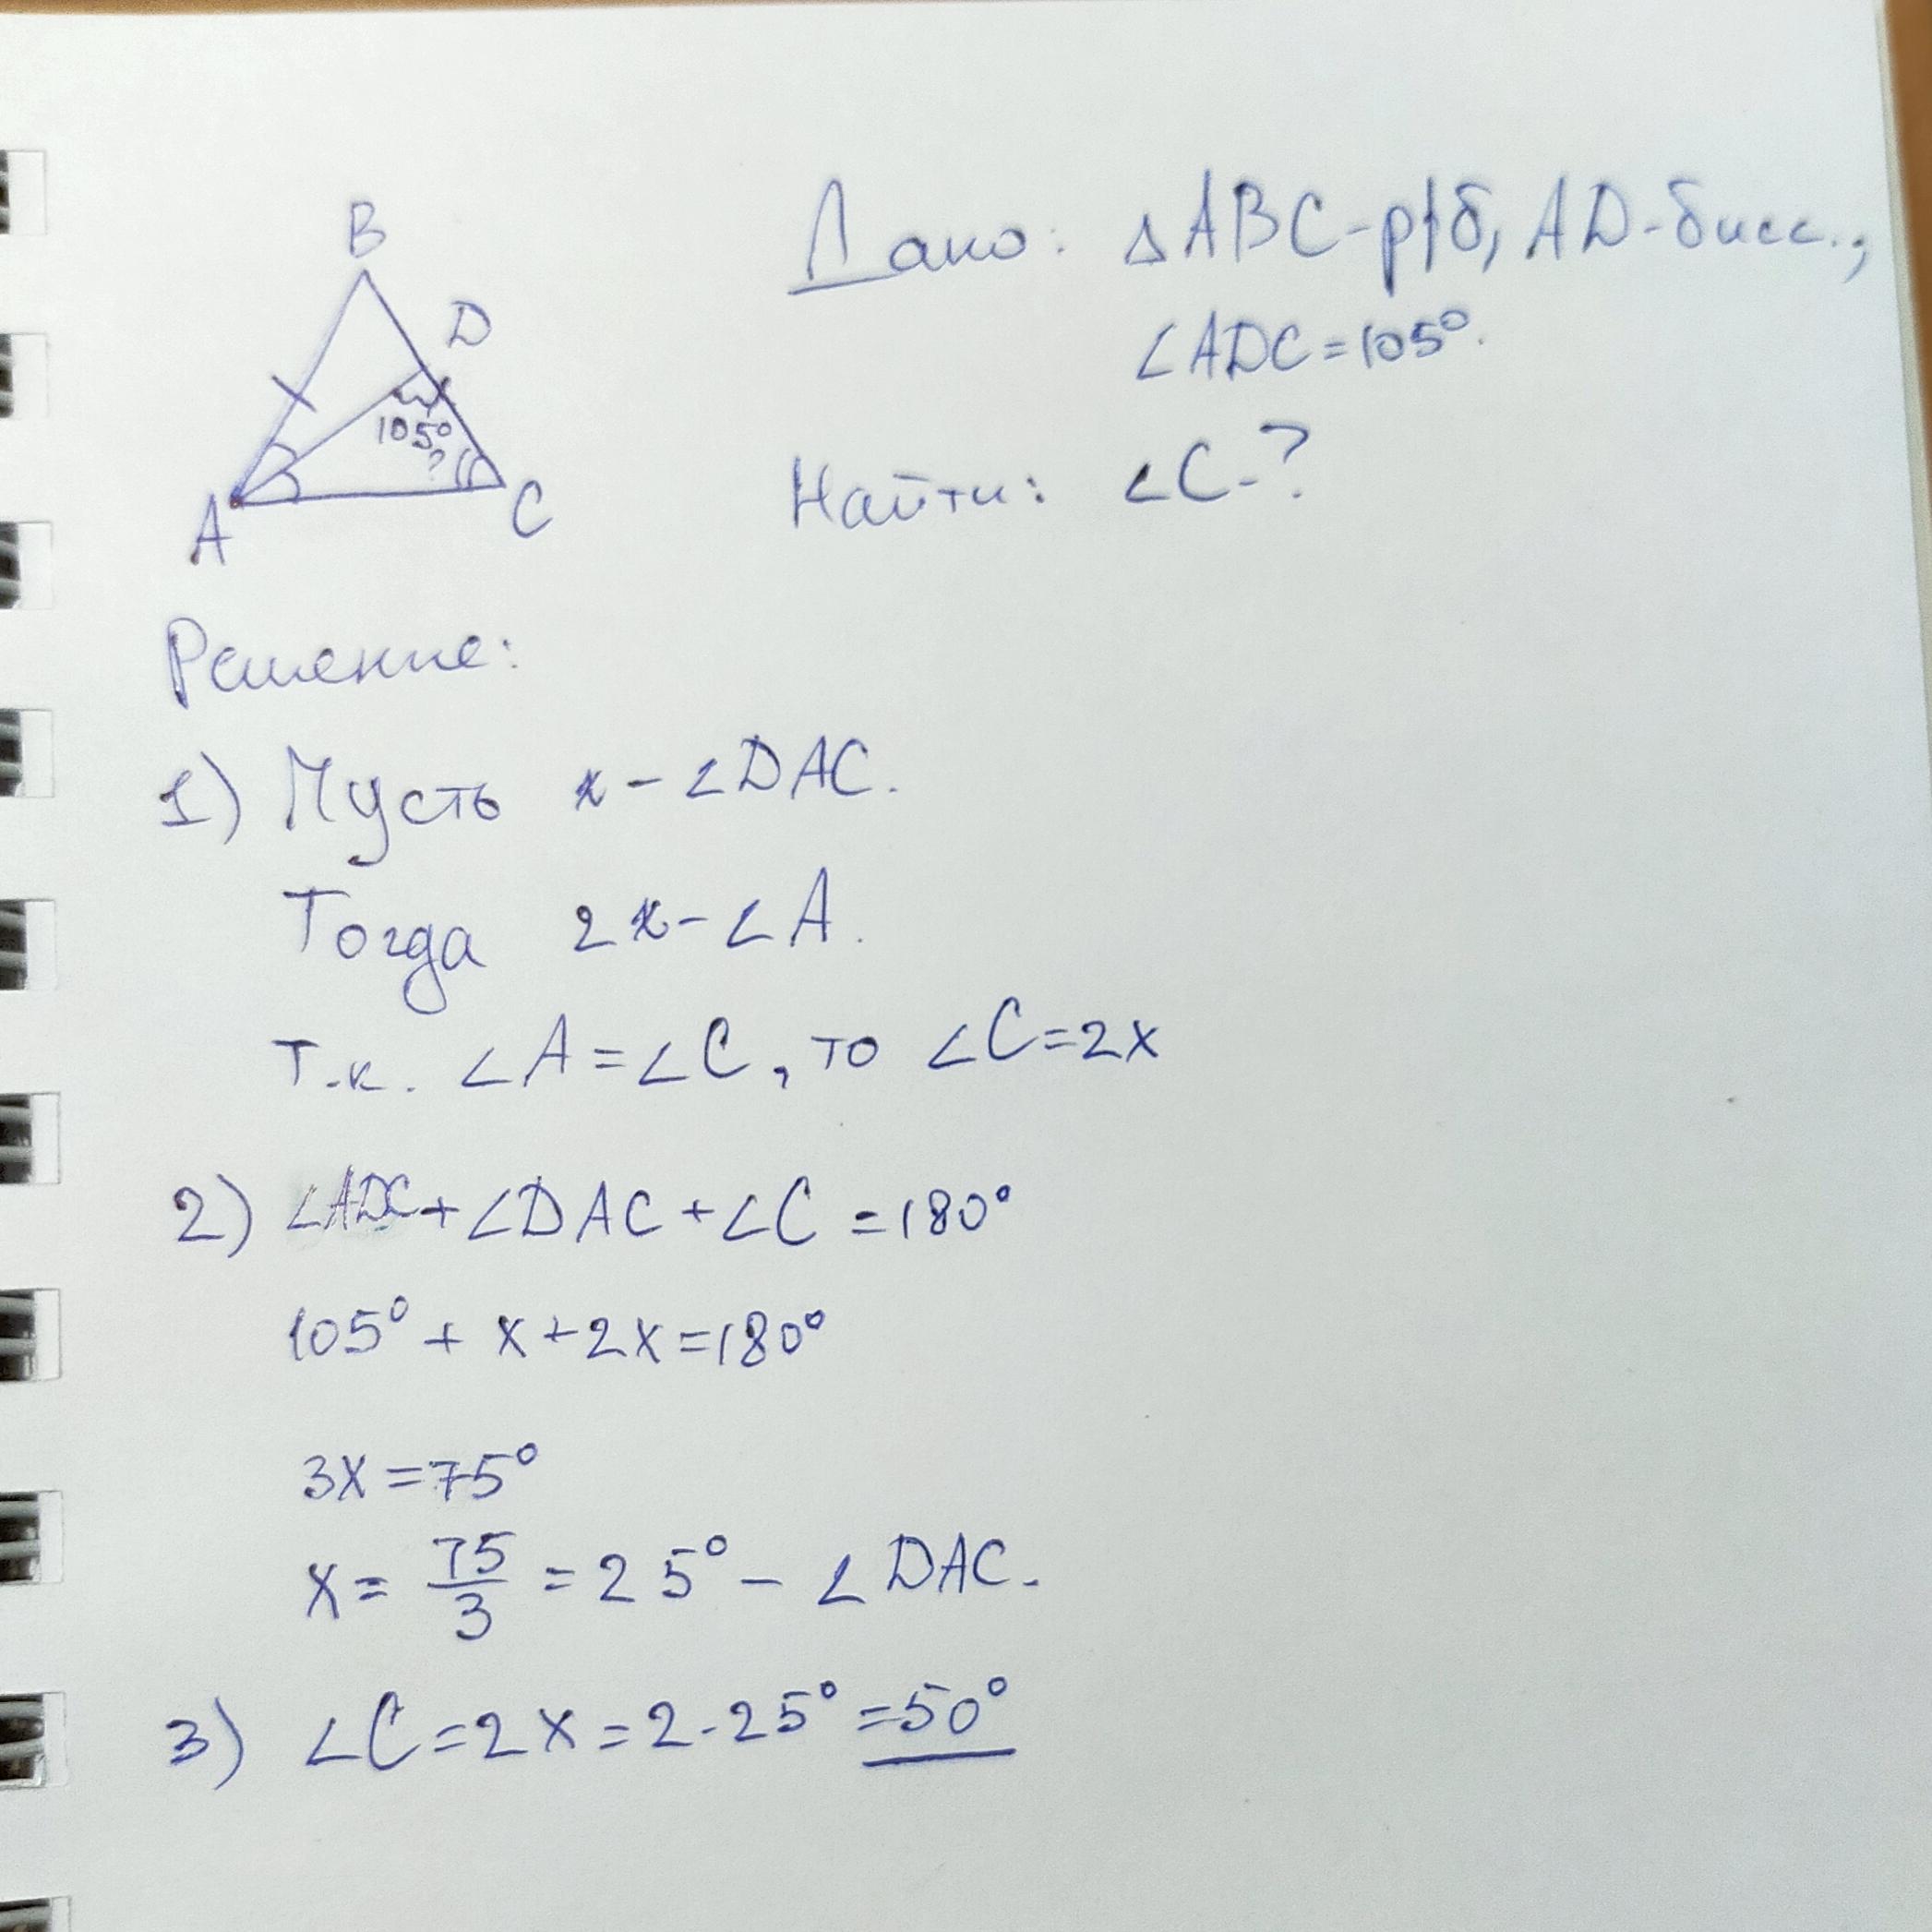 B
D
105°
?
A
C
Дано: △ABC-р/б, AD-бисс.,
∠ADC=105°.
Найти: ∠C-?
Решение:
1) Пусть x-∠DAC.
Тогда 2x-∠A.
Т.к. ∠A=∠C, то ∠C=2x
2) ∠ADC+∠DAC+∠C=180°
105°+x+2x=180°
3x=75°
x=75/3=25°-∠DAC.
3) ∠C=2x=2·25°=50°